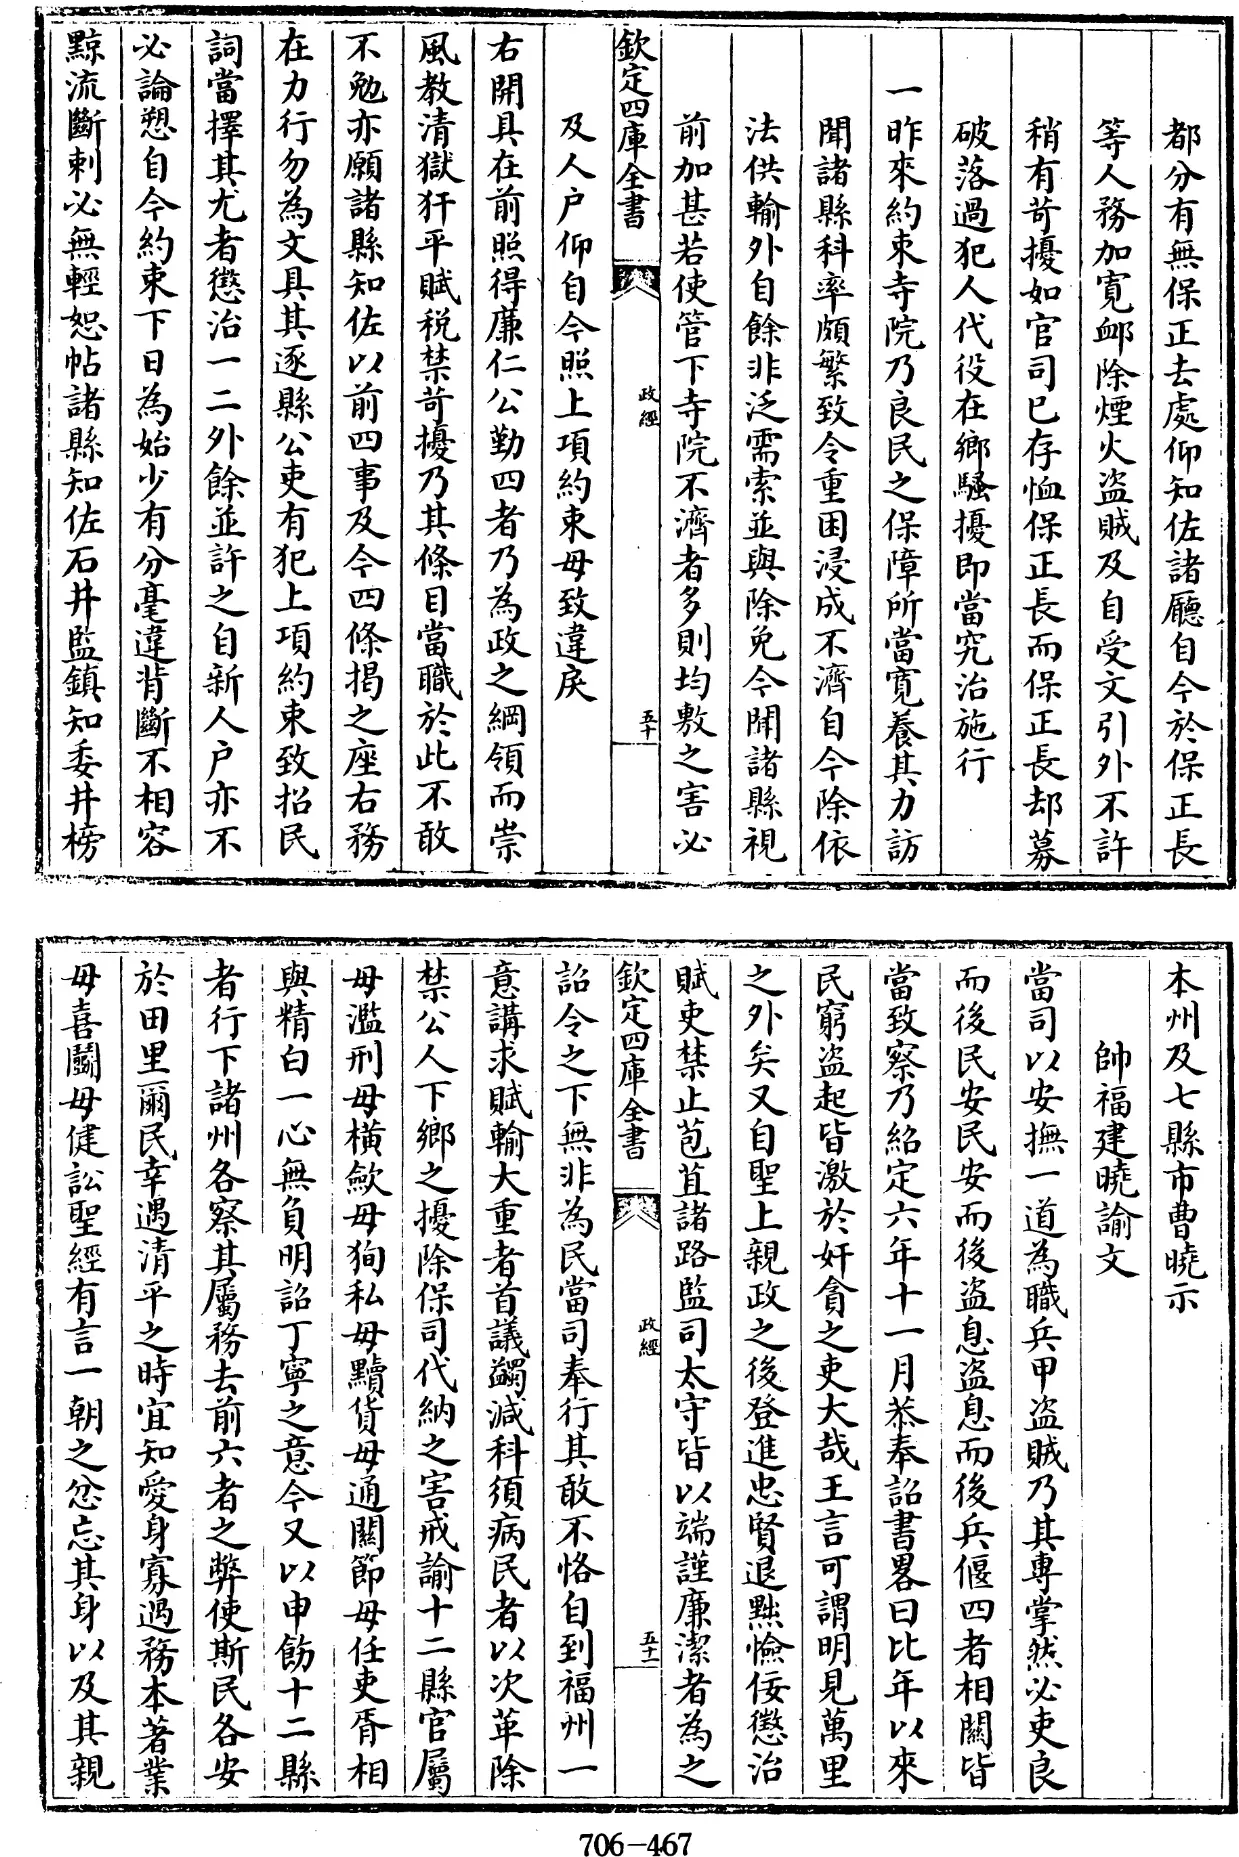 都分有無保正去處仰知佐諸廳自今於保正長
等人務加寛䘏除煙火盗賊及自受文引外不許
稍有苛擾如官司已存恤保正長而保正長却募
破落過犯人代役在鄉騷擾即當究治施行
一昨來約束寺院乃良民之保障所當寛養其力訪
聞諸縣科率頗繁致令重困浸成不濟自今除依
法供輸外自餘非泛需索並與除免今聞諸縣視
前加甚若使管下寺院不濟者多則均敷之害必
欽定四庫全書
政經
五十
及人户仰自今照上項約束毋致違戾
右開具在前照得廉仁公勤四者乃為政之綱領而崇
風教清獄犴平賦税禁苛擾乃其條目當職於此不敢
不勉亦願諸縣知佐以前四事及今四條揭之座右務
在力行勿為文具其逐縣公吏有犯上項約束致招民
詞當擇其尤者懲治一二外餘並許之自新人户亦不
必論愬自今約束下日為始少有分毫違背斷不相容
黥流斷刺必無輕恕帖諸縣知佐石井監鎮知委井榜
本州及七縣市曹曉示
帥福建曉諭文
當司以安撫一道為職兵甲盗賊乃其專掌然必吏良
而後民安民安而後盗息盗息而後兵偃四者相關皆
當致察乃紹定六年十一月恭奉詔書畧曰比年以來
民窮盗起皆激於奸貪之吏大哉王言可謂明見萬里
之外矣又自聖上親政之後登進忠賢退黜憸佞懲治
賦吏禁止苞苴諸路監司太守皆以端謹廉潔者為之
欽定四庫全書
政經
五十一
詔令之下無非為民當司奉行其敢不恪自到福州一
意講求賦輸大重者首議蠲減科須病民者以次革除
禁公人下鄉之擾除保司代納之害戒諭十二縣官屬
毋濫刑毋橫歛毋狥私毋黷貨毋通關節毋任吏胥相
與精白一心無負明詔丁寧之意今又以申飭十二縣
者行下諸州各察其屬務去前六者之弊使斯民各安
於田里爾民幸遇清平之時宜知愛身寡過務本著業
毋喜鬭毋健訟聖經有言一朝之忿忘其身以及其親
706-467